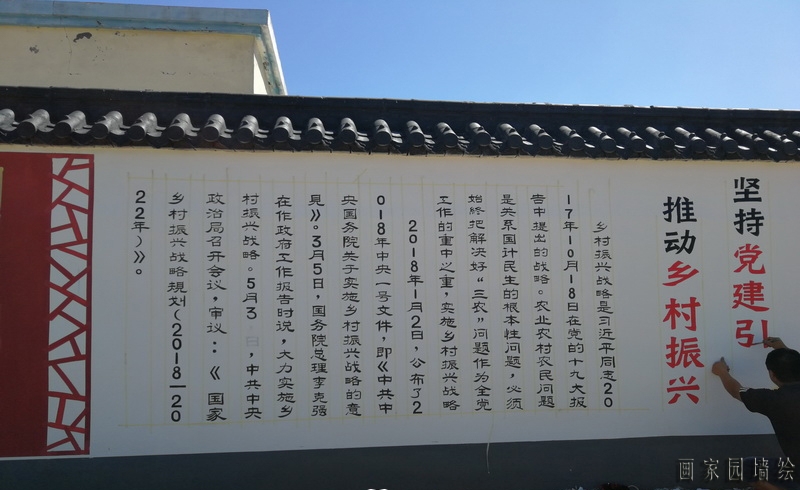 坚持党建引
推动乡村振兴
乡村振兴战略是习近平同志20
17年10月18日在党的十九大报
告中提出的战略。农业农村农民问题
是关系国计民生的根本性问题，必须
始终把解决好“三农”问题作为全党
工作的重中之重，实施乡村振兴战略
2018年1月2日，公布了2
018年中央一号文件，即《中共中
央国务院关于实施乡村振兴战略的意
见》。3月5日，国务院总理李克强
在作政府工作报告时说，大力实施乡
村振兴战略。5月3 日，中共中央
政治局召开会议，审议：《 国家
乡村振兴战略规划（2018—20
22年）》。
画家园墙绘